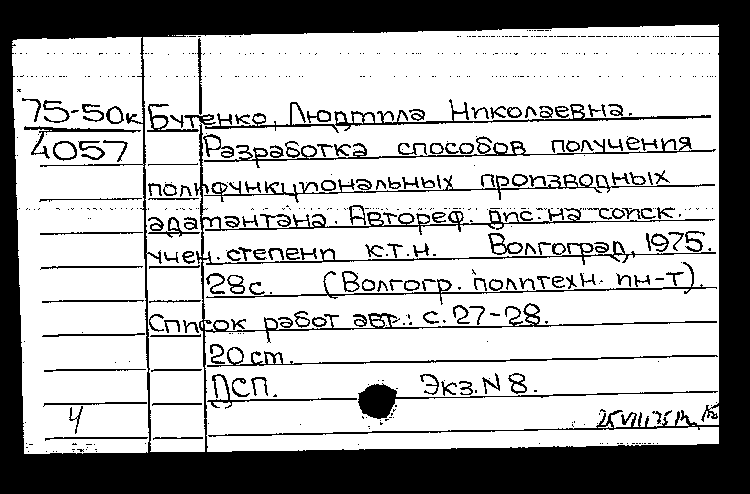 75-50к Бутенко, Людмила Николаевна.
4057 Разработка способов получения
полифункциональных производных
адамантана. Автореф. дис. на соиск.
учен. степени к.т.н. Волгоград, 1975.
28с. (Волгогр. политехн. ин-т).
Список работ авт.: с. 27-28.
20 ст.
ДСП. Экз. N 8.
4 25 VIII 75